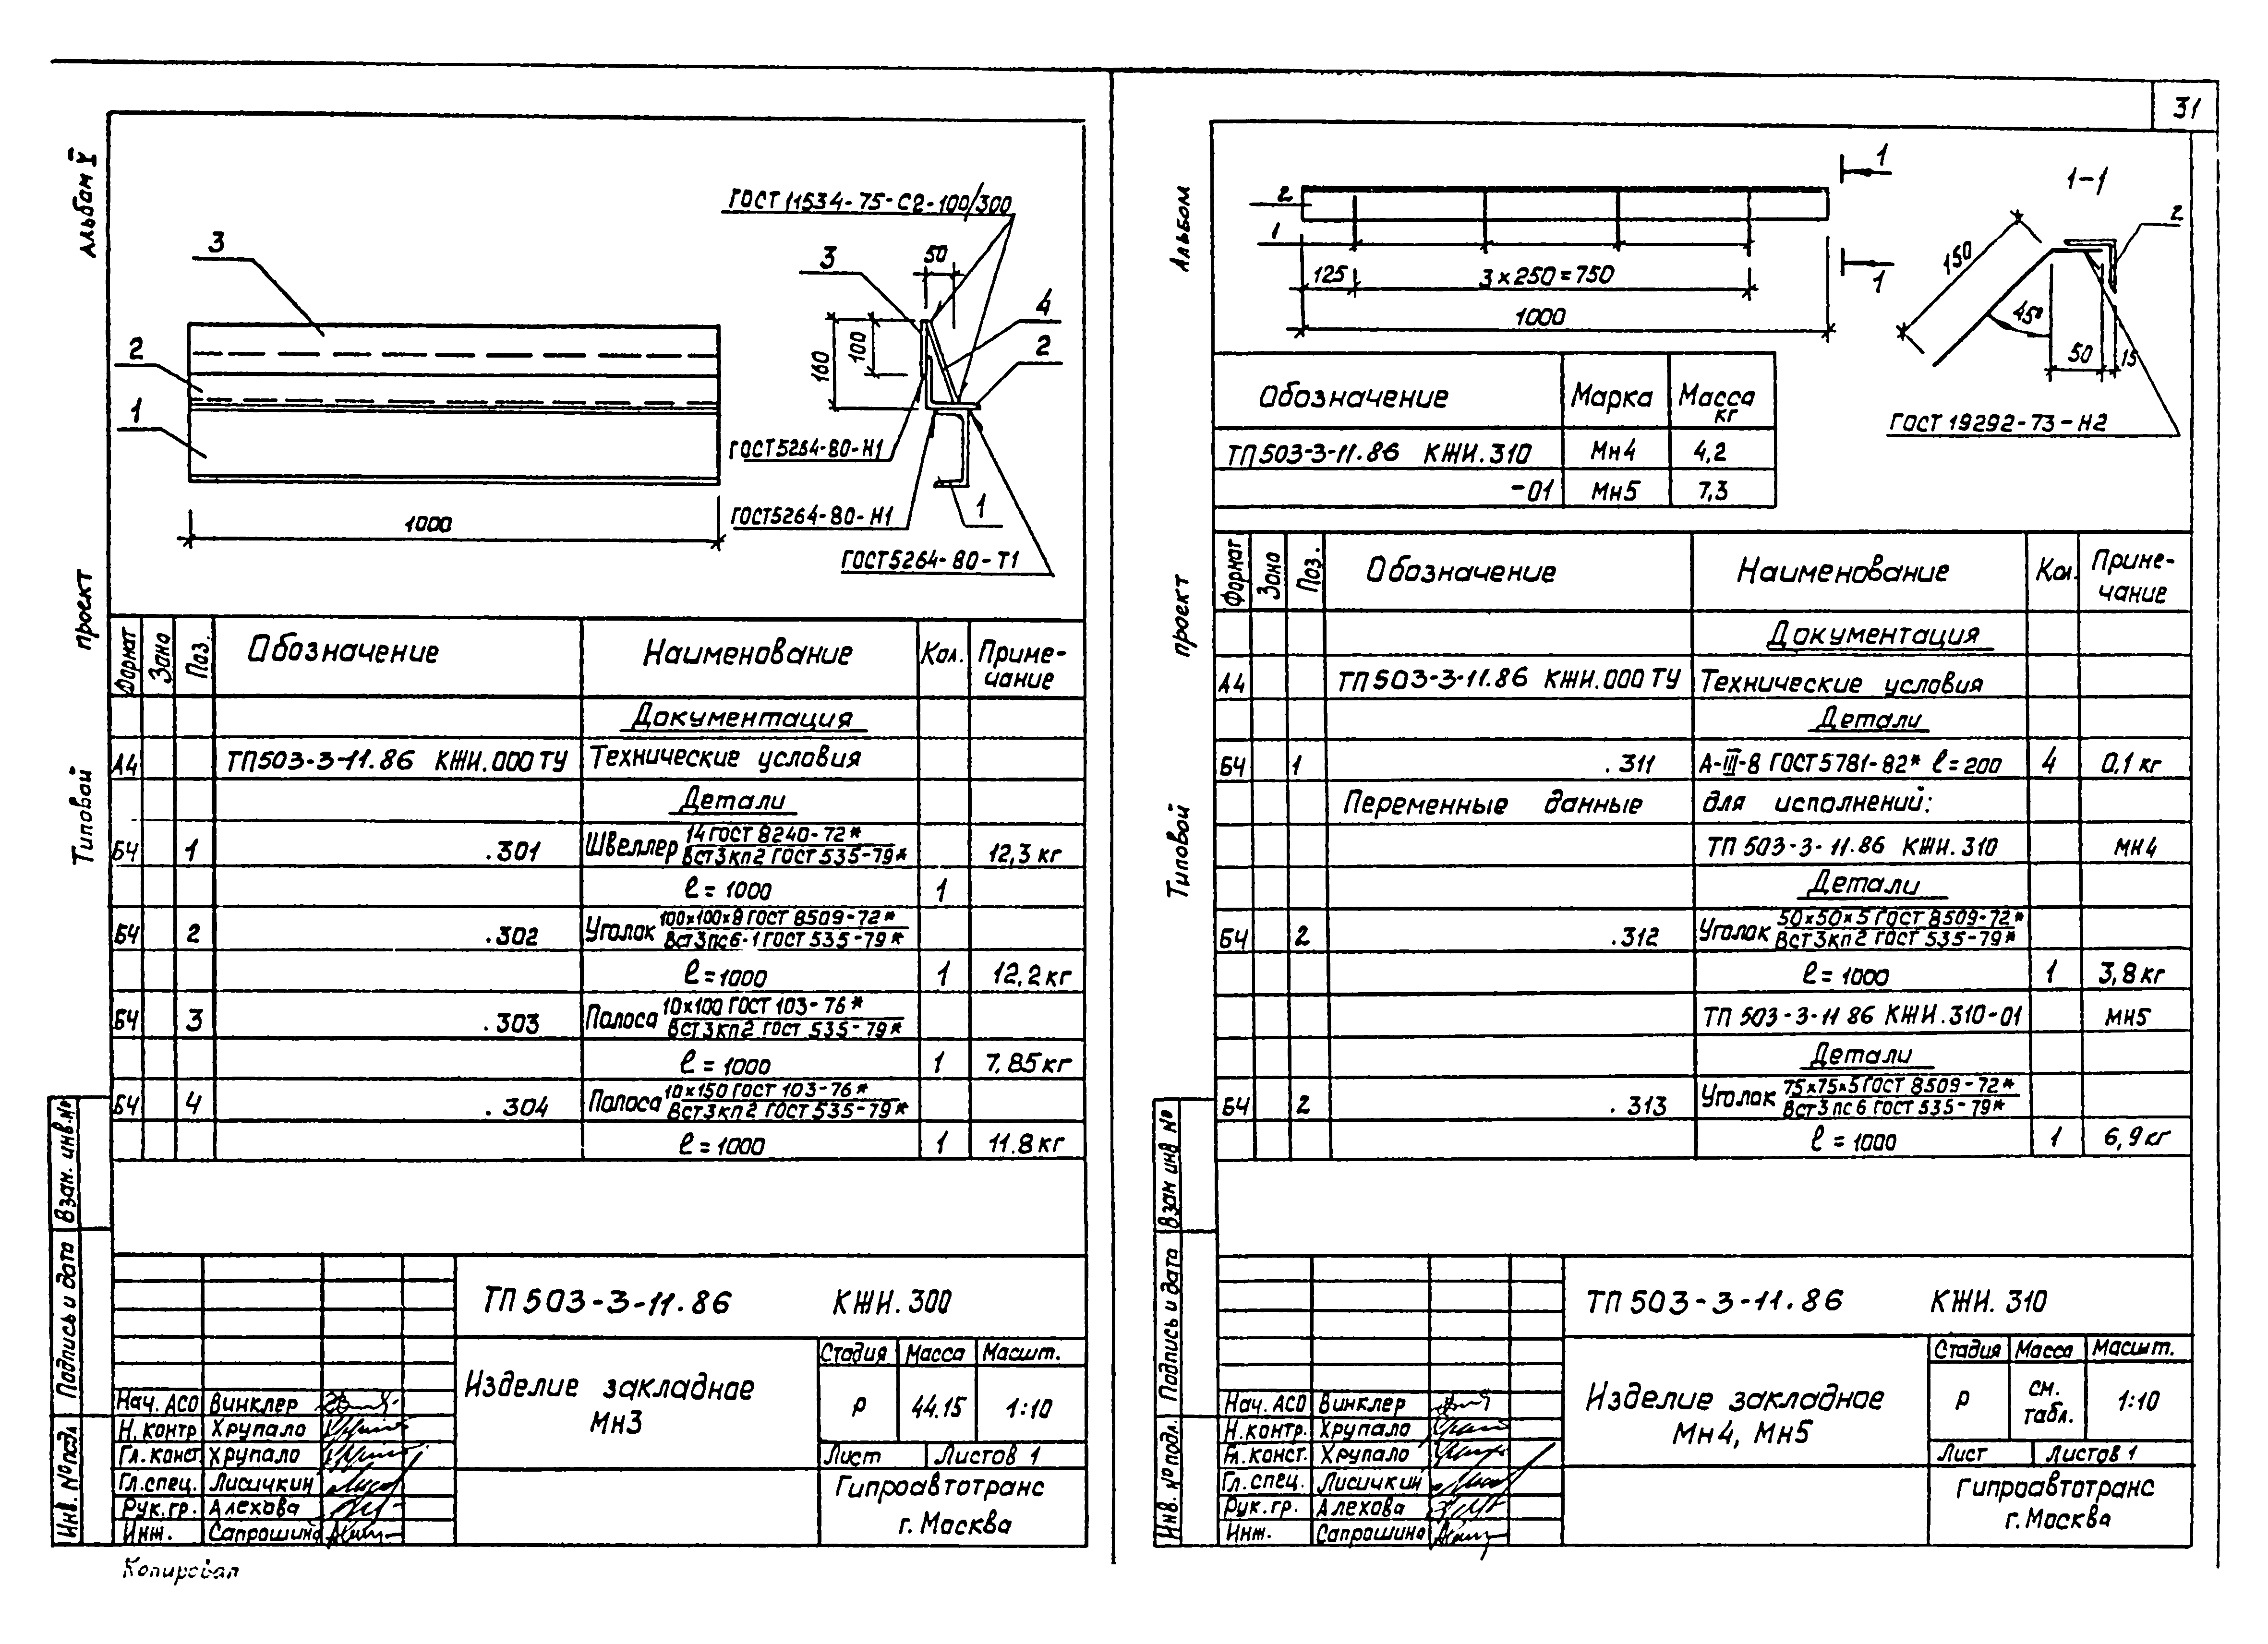 31
Альбом V
проект
Типовой
ГОСТ 11534-75-С2-100/300
3
50
3
4
2
2
160
100
1
ГОСТ 5264-80-Н1
1
ГОСТ 5264-80-Н1
1000
ГОСТ 5264-80-Т1
Формат Зона Поз. Обозначение Наименование Кол. Приме-
чание
Документация
А4 ТП 503-3-11.86 КЖИ.000 ТУ Технические условия
Детали
БЧ 1 .301 Швеллер 14 ГОСТ 8240-72*
ВСт3кп2 ГОСТ 535-79* 12,3 кг
ℓ=1000 1
БЧ 2 .302 Уголок 100х100х8 ГОСТ 8509-72*
ВСт3пс6-1 ГОСТ 535-79*
ℓ=1000 1 12,2 кг
БЧ 3 .303 Полоса 10х100 ГОСТ 103-76*
ВСт3кп2 ГОСТ 535-79*
ℓ=1000 1 7,85 кг
БЧ 4 .304 Полоса 10х150 ГОСТ 103-76*
ВСт3кп2 ГОСТ 535-79*
ℓ=1000 1 11.8 кг
Взам. инв. №
Подпись и дата
Инв. № подл
ТП 503-3-11.86 КЖИ.300
Изделие закладное
Мн3
Стадия Масса Масшт.
Р 44.15 1:10
Лист Листов 1
Гипроавтотранс
г. Москва
Нач. АСО Винклер
Н. контр Хрупало
Гл. конст Хрупало
Гл. спец. Лисичкин
Рук. гр. Алехова
Инж. Сапрошина
Копировал
Альбом
проект
Типовой
1
1-1
2
2
1
150
125
3×250=750
1
45°
1000
50
15
ГОСТ 19292-73-Н2
Обозначение Марка Масса
кг
ТП 503-3-11.86 КЖИ.310 Мн4 4,2
-01 Мн5 7,3
Формат Зона Поз. Обозначение Наименование Кол. Приме-
чание
Документация
А4 ТП 503-3-11.86 КЖИ.000 ТУ Технические условия
Детали
БЧ 1 .311 А-III-8 ГОСТ 5781-82* ℓ=200 4 0,1 кг
Переменные данные для исполнений:
ТП 503-3-11.86 КЖИ.310 Мн4
Детали
БЧ 2 .312 Уголок 50х50х5 ГОСТ 8509-72*
ВСт3кп2 ГОСТ 535-79*
ℓ=1000 1 3,8 кг
ТП 503-3-11 86 КЖИ.310-01 Мн5
Детали
БЧ 2 .313 Уголок 75х75х5 ГОСТ 8509-72*
ВСт3пс6 ГОСТ 535-79*
ℓ=1000 1 6,9 кг
Взам инв №
Подпись и дата
Инв. № подл.
ТП 503-3-11.86 КЖИ.310
Изделие закладное
Мн4, Мн5
Стадия Масса Масшт.
Р см.
табл. 1:10
Лист Листов 1
Гипроавтотранс
г. Москва
Нач. АСО Винклер
Н. контр. Хрупало
Гл. конст. Хрупало
Гл. спец. Лисичкин
Рук. гр. Алехова
Инж. Сапрошина